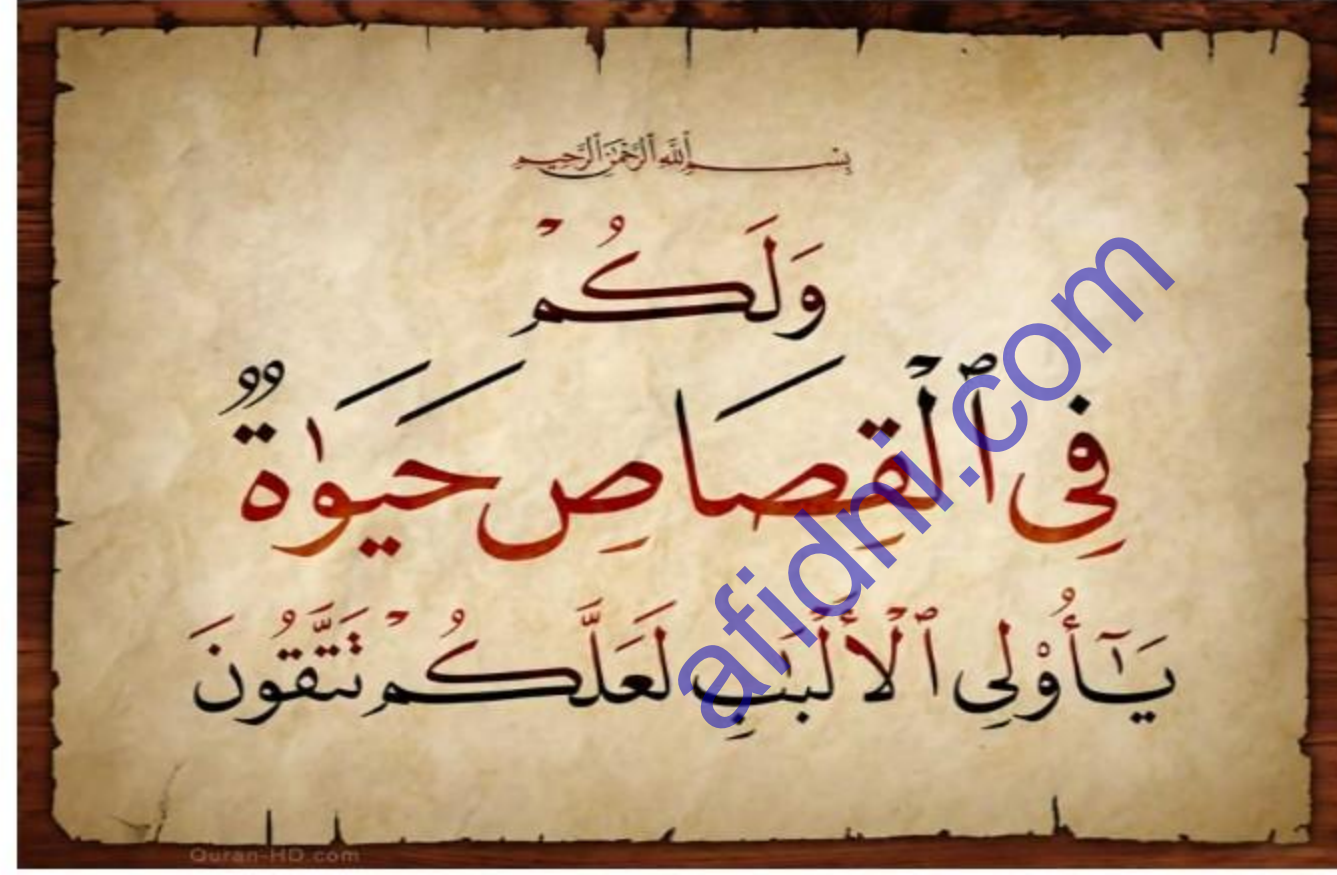 بِسْمِ ٱللَّهِ ٱلرَّحْمَٰنِ ٱلرَّحِيمِ
وَلَكُمْ
فِى ٱلْقِصَاصِ حَيَوٰةٌ
يَـٰٓأُو۟لِى ٱلْأَلْبَـٰبِ لَعَلَّكُمْ تَتَّقُونَ
afidni.com
Quran-HD.com